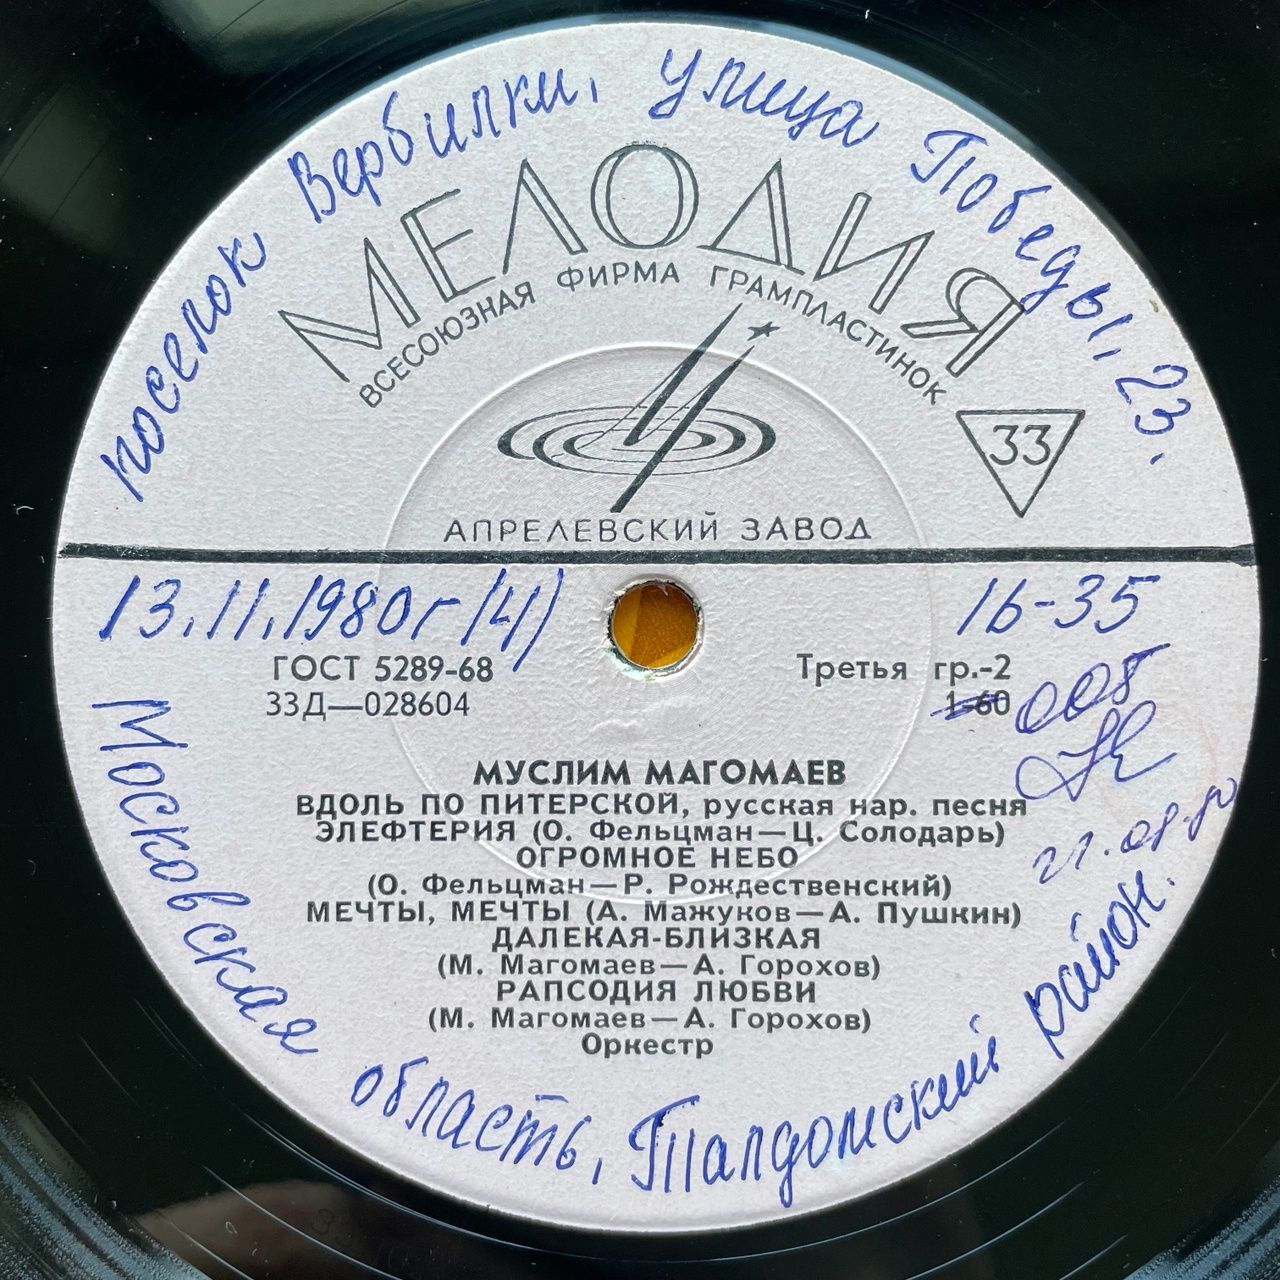 поселок Вербилки, улица Победы, 23.
МЕЛОДИЯ
ВСЕСОЮЗНАЯ ФИРМА ГРАМПЛАСТИНОК
33
АПРЕЛЕВСКИЙ ЗАВОД
13.11.1980г (4) 16-35
ГОСТ 5289-68 Третья гр.-2
33Д—028604 1-60 008
МУСЛИМ МАГОМАЕВ
ВДОЛЬ ПО ПИТЕРСКОЙ, русская нар. песня
ЭЛЕФТЕРИЯ (О. Фельцман—Ц. Солодарь)
ОГРОМНОЕ НЕБО
(О. Фельцман—Р. Рождественский)
МЕЧТЫ, МЕЧТЫ (А. Мажуков—А. Пушкин)
ДАЛЕКАЯ-БЛИЗКАЯ
(М. Магомаев—А. Горохов)
РАПСОДИЯ ЛЮБВИ
(М. Магомаев—А. Горохов)
Оркестр
Московская область, Талдомский район.